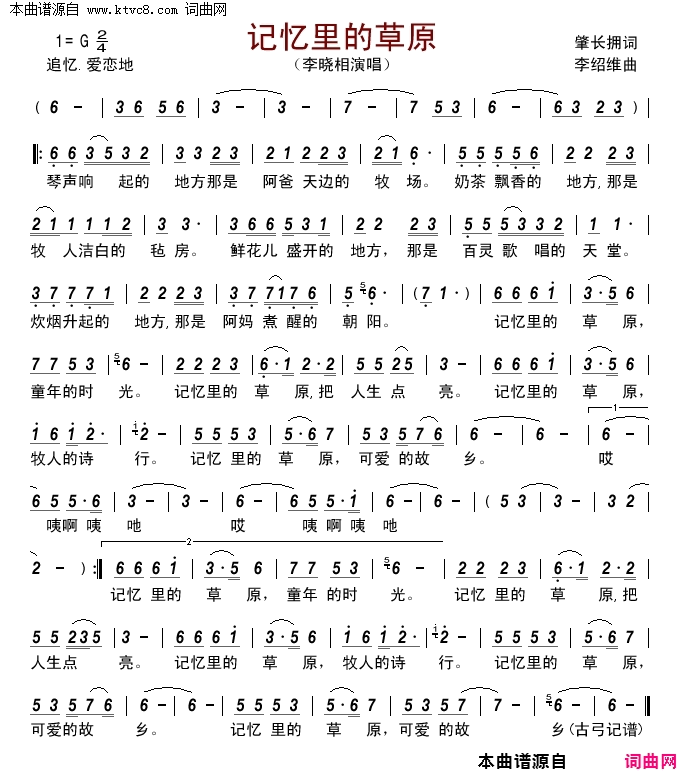 本曲谱源自
www.ktvc8.com 词曲网
1= G 2/4
记忆里的草原
肇长拥词
追忆.爱恋地
（李晓相演唱）
李绍维曲
( 6 - | 3 6 5 6 | 3 - | 3 - | 7 - | 7 5 3 | 6 - | 6 - | 6 3 2 3 ) |
‖: 6 6 3 5 3 2 | 3 3 2 3 | 2 1 2 2 3 | 2 1 6 · | 5 5 5 5 6 | 2 2 2 3 |
琴声响 起的 地方那是 阿爸 天边的 牧 场。 奶茶 飘香的 地方,那是
2 1 1 1 1 2 | 3 3 · | 3 6 6 5 3 1 | 2 2 2 3 | 5 5 5 3 3 2 | 3 3 · |
牧 人洁白的 毡 房。 鲜花儿 盛开的 地方，那是 百灵歌 唱的 天 堂。
3 7 7 7 1 | 2 2 2 3 | 3 7 7 1 7 6 | 5 5 6 · | ( 7 1 · ) | 6 6 6 1 | 3 · 5 6 |
炊烟升起的 地方,那是 阿妈 煮 醒的 朝 阳。 记忆里的 草 原，
7 7 5 3 | 5 6 - | 2 2 2 3 | 6 · 1 2 · 2 | 5 5 2 5 | 3 - | 6 6 6 1 | 3 · 5 6 |
童年的时 光。 记忆里的 草 原,把 人生点 亮。 记忆里的 草 原，
1 6 1 2 · | i 2 - | 5 5 5 3 | 5 · 6 7 | 5 3 5 7 6 | 6 - | 6 - | 6 - |
1
牧人的诗 行。 记忆 里的 草 原，可爱的故 乡。 哎
6 5 5 · 6 | 3 - | 3 - | 6 - | 6 5 5 · 1 | 6 - | 6 - | ( 5 3 | 5 3 - | 3 2 |
咦啊 咦 吔 哎 咦 啊咦 吔
2
2 - ) :‖ 6 6 6 1 | 3 · 5 6 | 7 7 5 3 | 5 6 - | 2 2 2 3 | 6 · 1 2 · 2 |
记忆 里的 草 原，童年 的时 光。 记忆 里的 草 原,把
5 5 2 3 5 | 3 - | 6 6 6 1 | 3 · 5 6 | 1 6 1 2 · | i 2 - | 5 5 5 3 | 5 · 6 7 |
人生点 亮。 记忆里的 草 原，牧人的诗 行。 记忆里的 草 原，
5 3 5 7 6 | 6 - | 5 5 5 3 | 5 · 6 7 | 5 3 5 7 | 6 - | 6 - ‖
可爱的故 乡。 记忆 里的 草 原，可爱 的故 乡(古弓记谱)
本曲谱源自 词曲网